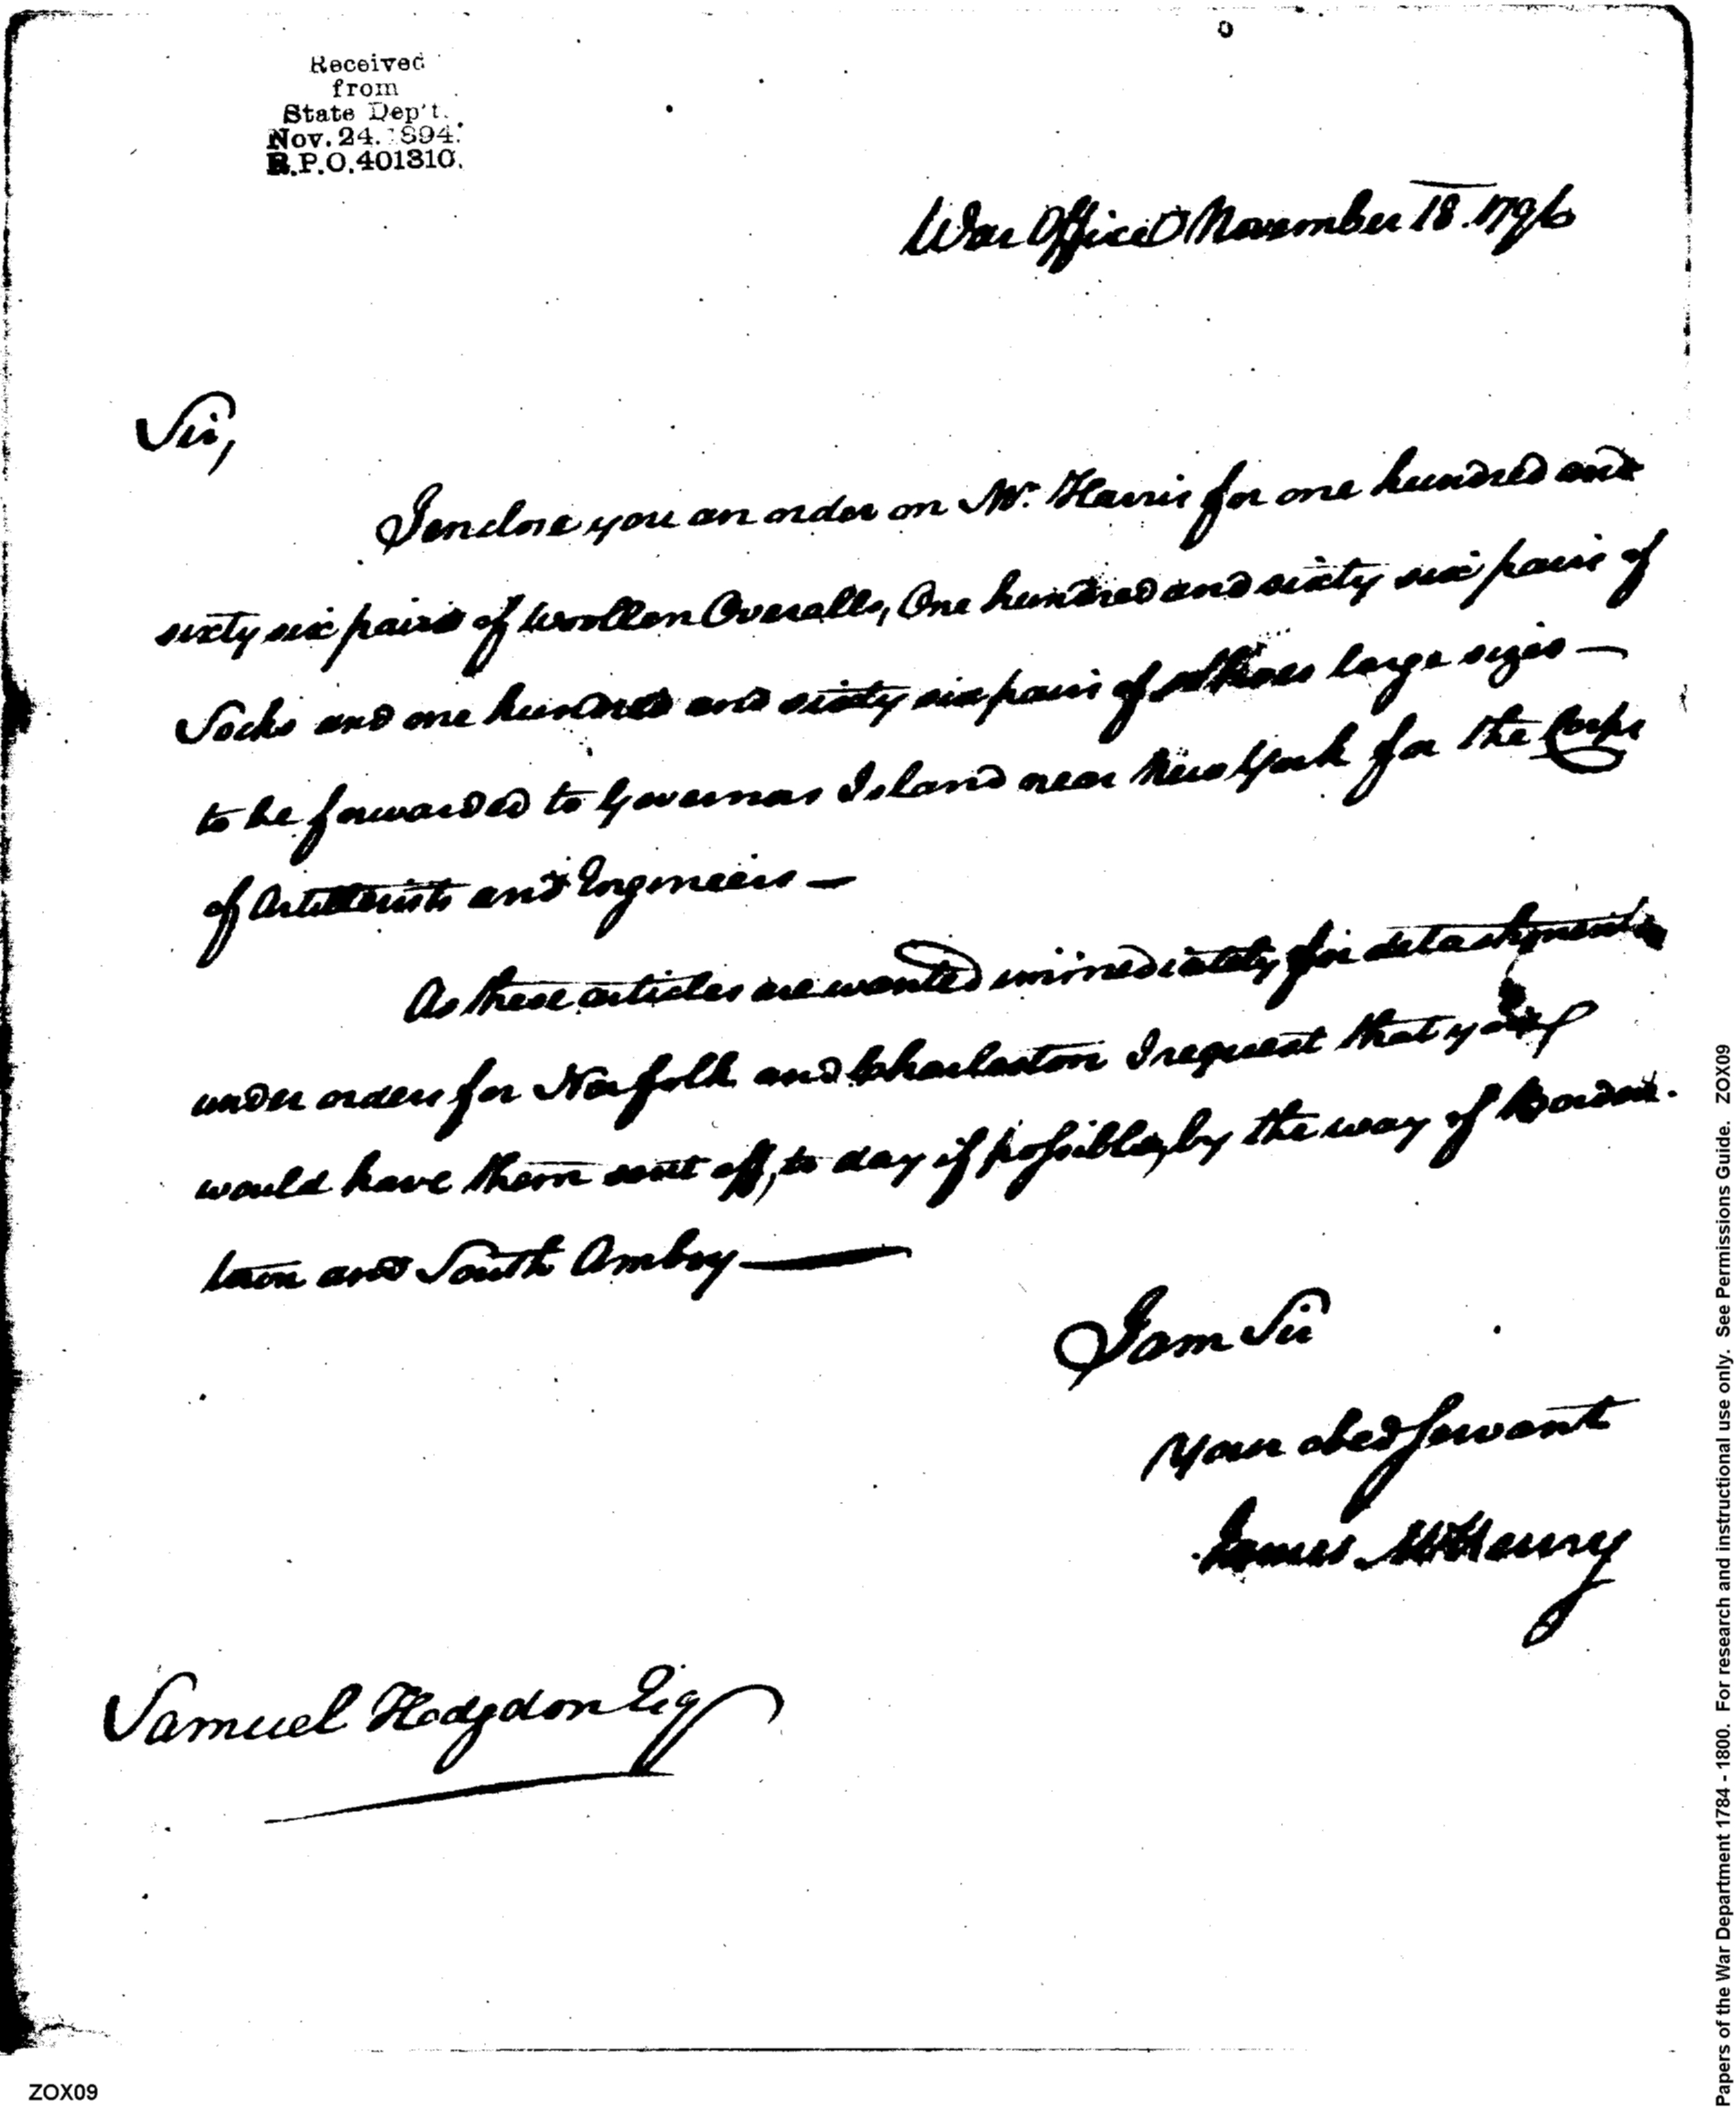 Received
from
State Dep't.
Nov. 24. 1894.
R.P.O. 401310.
War Office November 18. 1796
Sir,
I enclose you an order on Mr. Harris for one hundred and
sixty six pairs of woollen Overalls, One hundred and sixty six pairs of
Socks and one hundred and sixty six pairs of shoes large sizes —
to be forwarded to Governors Island near New York for the Corps
of Artillerists and Engineers —
As these articles are wanted immediately for detachments
under orders for Norfolk and Charleston I request that you
would have them sent off, to day if possible, by the way of Borden-
town and South Amboy —
I am Sir
Your obed servant
James McHenry
Samuel Hodgdon Esq
ZOX09
Papers of the War Department 1784 - 1800. For research and instructional use only. See Permissions Guide. ZOX09